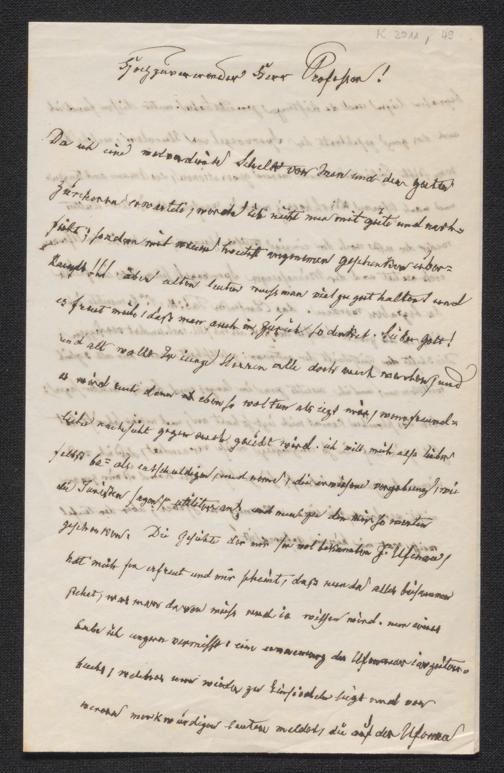 K 2011, 49
Hochzuverehrender Herr Professor!
Da ich eine wolverdiente Schelte von Ihnen und den guten
Zürchern erwartete, werde ich nicht nur mit güte und nach=
sicht, sondern mit einem höchst angenemen geschenke über=
rascht!!! aber alten leuten muss man viel zu gut halten! und
es freut mich, dass man auch in Zürich so denket. lieber gott!
und alt wollt Ir junge Herren alle doch auch werden, und
es wird euch dann eben so wol tun als jezt mir, wenn freund=
liche nachsicht gegen euch geübt wird. ich will mich also lieber
selbst als entschuldigen, und neme die erwisene vergebung, wie
die Juristen sagen utiliter an, und
geschenke. Die Geschichte der mir so wol bekannten J. Ufenau,
hat mich ser erfreut und mir scheint, dass nun da alles beisammen
stehet, was man davon weiss und ie wissen wird. nur eines
habe ich ungern vermisst: eine der Ufenau im
buchs, welches nun wieder zu Einsideln ligt und von
merern merkwürdigen leuten meldet, die auf der Ufenau